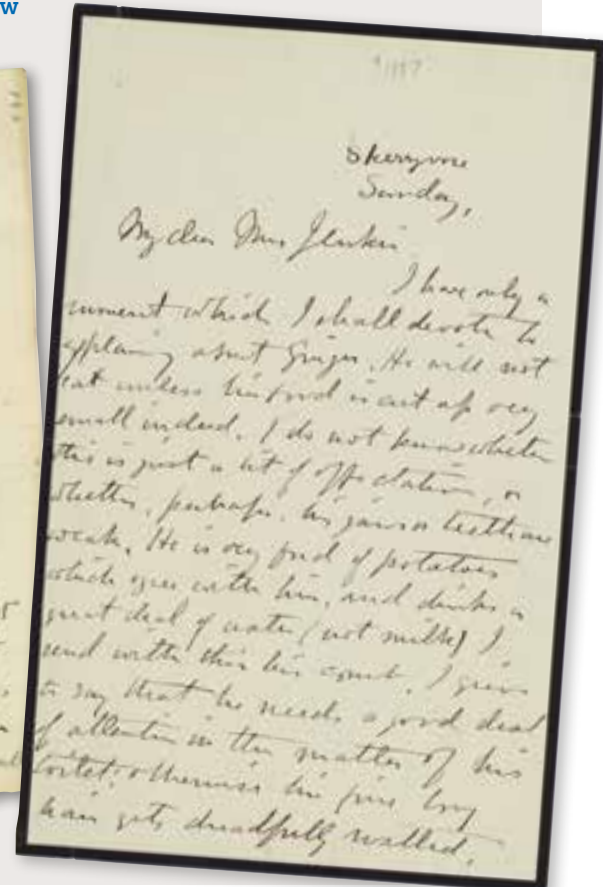 w
Skerryvore
Sunday,
My dear Mrs Jenkin
I have only a
moment which I shall devote to
explaining about Ginger. He will not
eat unless his food is cut up very
small indeed. I do not know whether
this is just a bit of affectation, or
whether, perhaps, his jaws or teeth are
weak. He is very fond of potatoes
which agree with him, and drinks a
great deal of water (not milk) I
send with this his comb. I grieve
to say that he needs a good deal
of attention in the matter of his
toilet; otherwise his fine long
hair gets dreadfully matted.